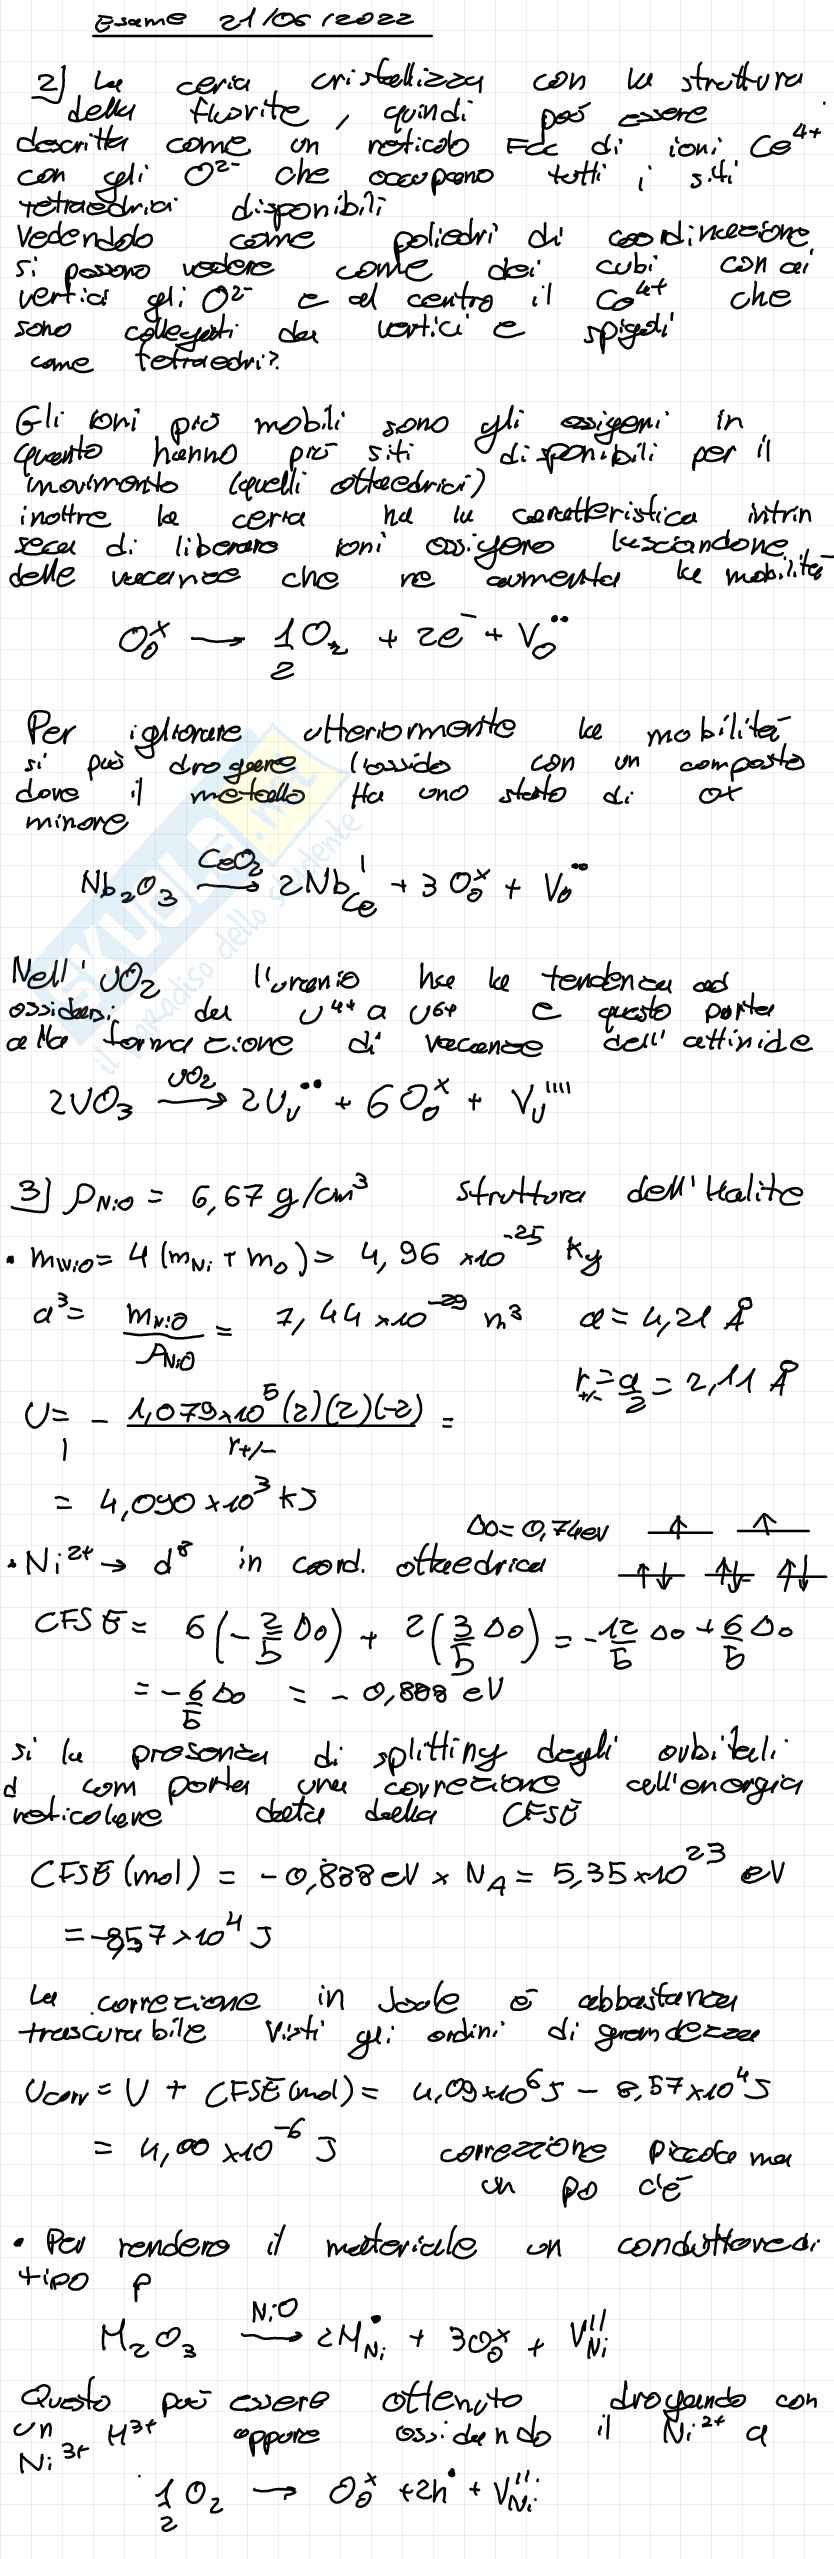 Esame 21/06/2022
2) La ceria cristallizza con la struttura
della fluorite, quindi può essere
descritta come un reticolo Fcc di ioni Ce⁴⁺
con gli O²⁻ che occupano tutti i siti
tetraedrici disponibili
Vedendolo come poliedri di coordinazione
si possono vedere come dei cubi con ai
vertici gli O²⁻ e al centro il Ce⁴⁺ che
sono collegati da vertici e spigoli
come tetraedri?
Gli ioni più mobili sono gli ossigeni in
quanto hanno più siti disponibili per il
movimento (quelli ottaedrici)
inoltre la ceria ha la caratteristica intrin
seca di liberare ioni ossigeno lasciandone
delle vacanze che ne aumenta la mobilità
O_O^x → 1/2 O₂ + 2e⁻ + V_O^••
Per igliorare ulteriormente la mobilità
si può drogare l'ossido con un composto
dove il metallo Ha uno stato di ox
minore
Nb₂O₃ →(CeO₂) 2Nb_Ce^' + 3O_O^x + V_O^••
Nell'UO₂ l'uranio ha la tendenza ad
ossidarsi da U⁴⁺ a U⁶⁺ e questo porta
alla formazione di vacanze dell'attinide
2UO₃ →(UO₂) 2U_U^•• + 6O_O^x + V_U^''''
3) ρ_NiO = 6,67 g/cm³ struttura dell'Halite
• m_NiO = 4(m_Ni + m_O) = 4,96 ×10⁻²⁵ Kg
a³ = m_NiO/ρ_NiO = 7,44×10⁻²⁹ m³ a = 4,21 Å
r_+/- = a/2 = 2,11 Å
U = - 1,079×10⁵(2)(2)(-2)/r_+/- =
= 4,090×10³ kJ
Δo = 0,74eV
• Ni²⁺ → d⁸ in coord. ottaedrica
CFSE = 6(-2/5 Δo) + 2(3/5 Δo) = -12/5 Δo + 6/5 Δo
= -6/5 Δo = -0,888 eV
si la presenza di splitting degli orbitali
d comporta una correzione all'energia
reticolare data dalla CFSE
CFSE(mol) = -0,888 eV × N_A = 5,35×10²³ eV
= -8,57×10⁴ J
La correzione in Joule è abbastanza
trascurabile visti gli ordini di grandezza
Ucorr = U + CFSE(mol) = 4,09×10⁶J - 8,57×10⁴J
= 4,00×10⁻⁶ J correzione piccola ma
un po c'è
• Per rendere il materiale un conduttore di
tipo p
M₂O₃ →(NiO) 2M_Ni^• + 3O_O^x + V_Ni^''
Questo può essere ottenuto drogando con
un M³⁺ oppure ossidando il Ni²⁺ a
Ni³⁺
1/2 O₂ → O_O^x + 2h^• + V_Ni^''
SKUOLA.net
il paradiso dello studente